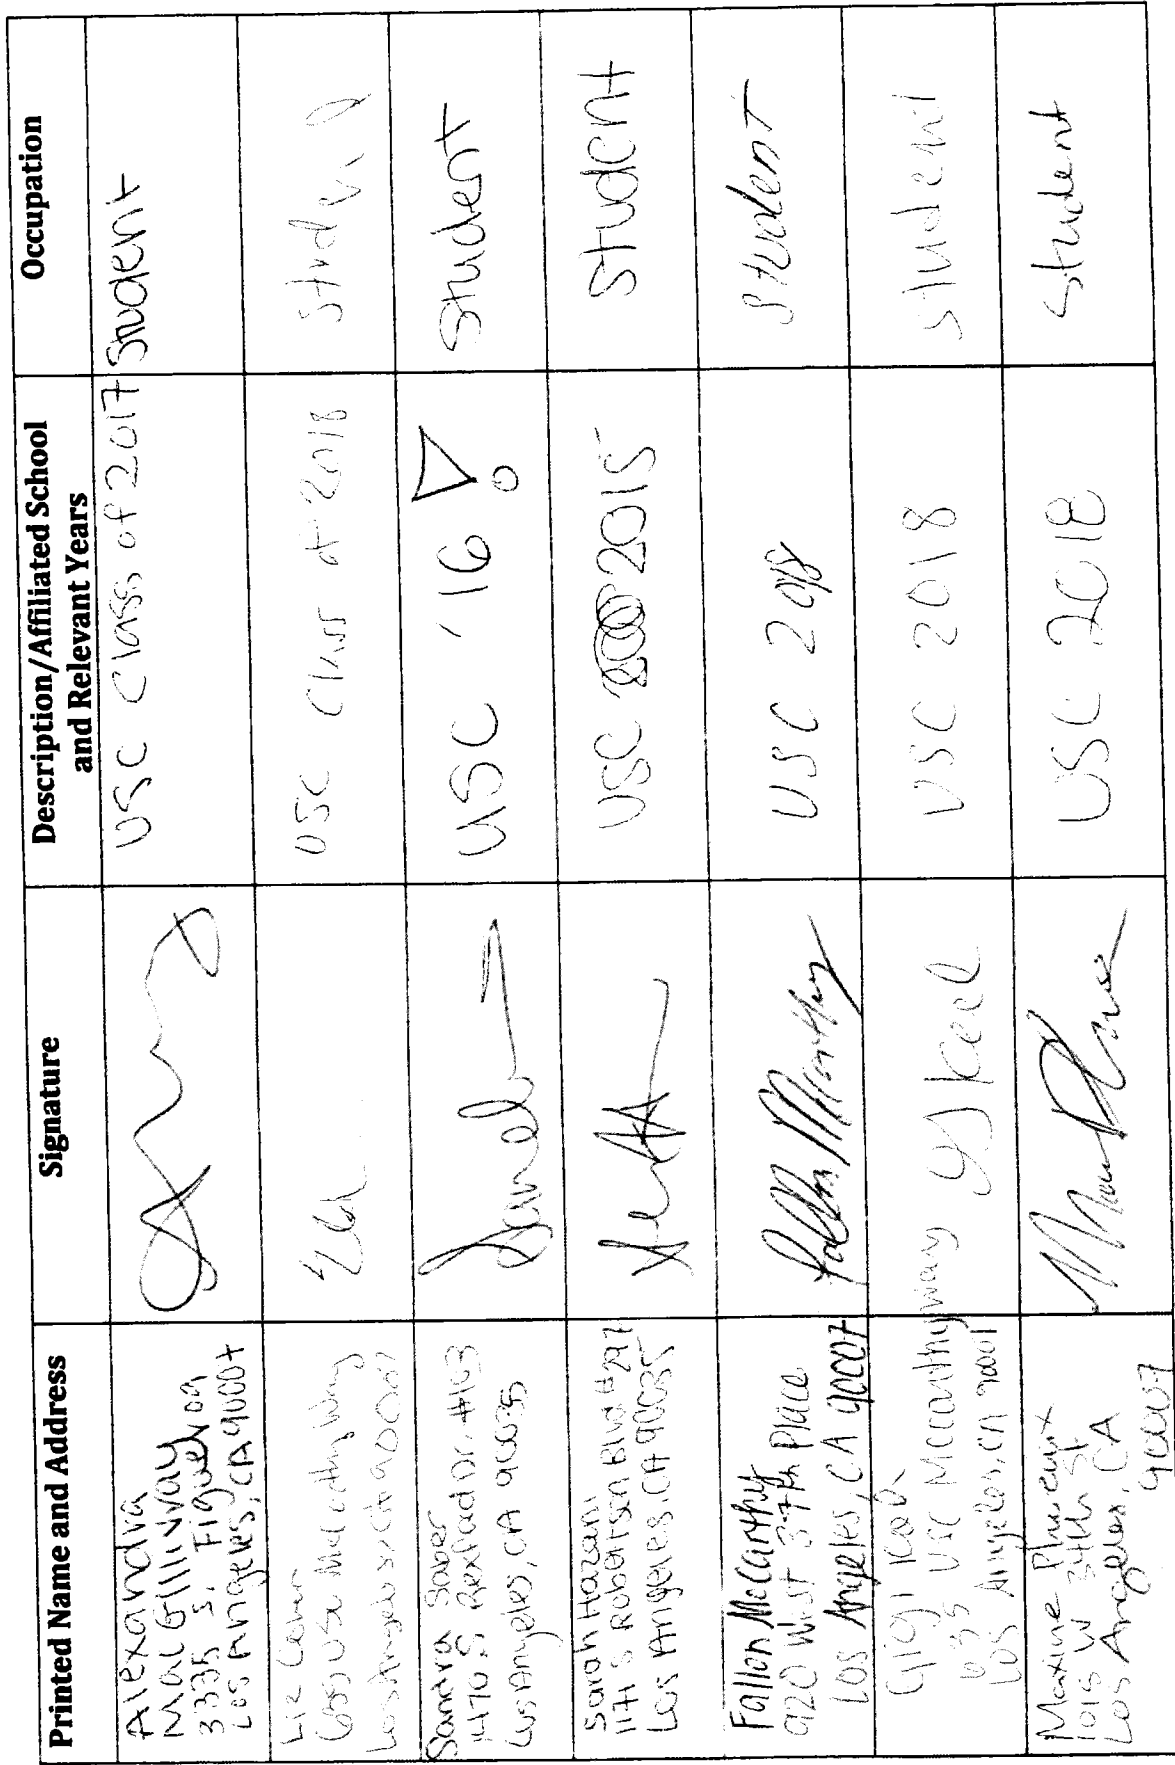 Printed Name and Address
Signature
Description/Affiliated School
and Relevant Years
Occupation
Alexandra
MacGillivray
3335 S. Figueroa
Los Angeles, CA 90007
USC Class of 2017
Student
Liz Cohen
635 USC McCarthy Way
Los Angeles, CA 90007
USC Class of 2018
Student
Sandra Saber
1470 S. Rexford Dr. #103
Los Angeles, CA 90035
USC '16
Student
Sarah Hazani
1171 S Robertson Blvd #297
Los Angeles, CA 90035
USC 2015
Student
Fallon McCarthy
920 West 37th Place
Los Angeles, CA 90007
Fallon McCarthy
USC 2018
Student
Gigi
635 USC McCarthy way
Los Angeles, CA
USC 2018
Student
Maxine
1015 W 34th St
Los Angeles, CA
90007
USC 2018
Student